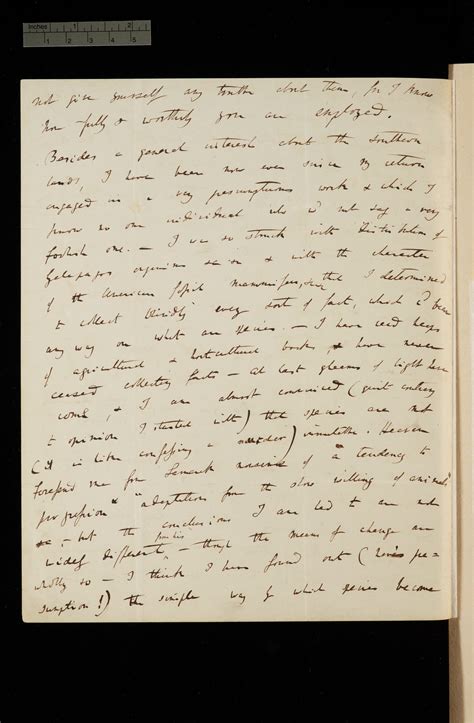 Inches 1 2
1 2 3 4 5
not give yourself any trouble about them, for I know
how fully & worthily you are employed.
Besides a general interest about the Southern
lands, I have been now ever since my return
engaged in a very presumptuous work & which I
know no one individual who wd not say a very
foolish one. — I was so struck with distribution of
Galapagos organisms &c &c & with the character
of the American fossil mammifers, &c &c that I determined
to collect blindly every sort of fact, which cd bear
any way on what are species. — I have read heaps
of agricultural & horticultural books, & have never
ceased collecting facts — At last gleams of light have
come, & I am almost convinced (quite contrary
to opinion I started with) that species are not
(it is like confessing a murder) immutable. Heaven
forefend me from Lamarck nonsense of a "tendency to
progression" "adaptations from the slow willing of animals"
&c, — but the conclusions I am led to are not
widely different from his — though the means of change are
wholly so — I think I have found out (here's pre-
sumption!) the simple way by which species become